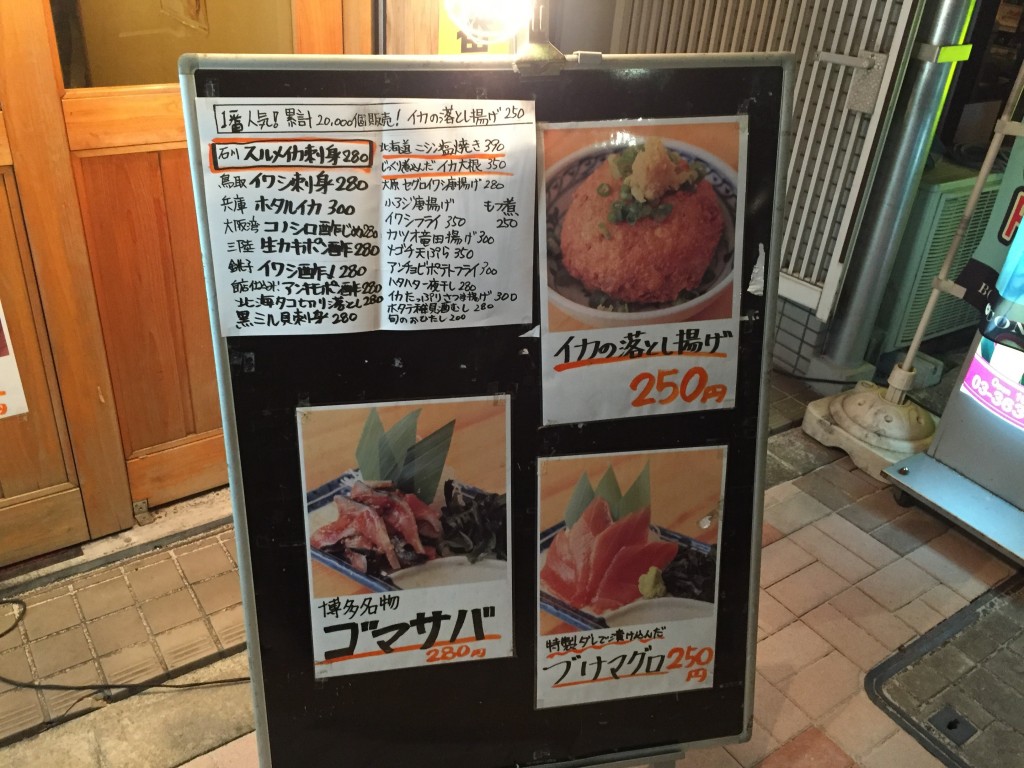 1番人気!! 累計20,000個販売! イカの落とし揚げ 250
石川 スルメイカ刺身 280
鳥取 イワシ刺身 280
兵庫 ホタルイカ 300
大阪湾 コノシロ酢じめ 280
三陸 生カキポン酢 280
銚子 イワシ酢〆 280
自家仕込み! アンキモポン酢 280
北海タコセロリ落とし 280
黒ミル貝刺身 280
北海道 ニシン塩焼き 390
じっくり煮込んだ イカ大根 350
大原 セグロイワシ唐揚げ 280
小アジ唐揚げ もつ煮
イワシフライ 350 250
カツオ竜田揚げ 300
メゴチ天ぷら 350
アンチョビポテトフライ 300
ハタハタ一夜干し 280
イカたっぷりさつま揚げ 300
ホタテ稚貝酒むし 280
旬のおひたし 200
イカの落とし揚げ
250円
博多名物
ゴマサバ
280円
特製ダレで漬け込んだ
ブケマグロ 250
円
03-363